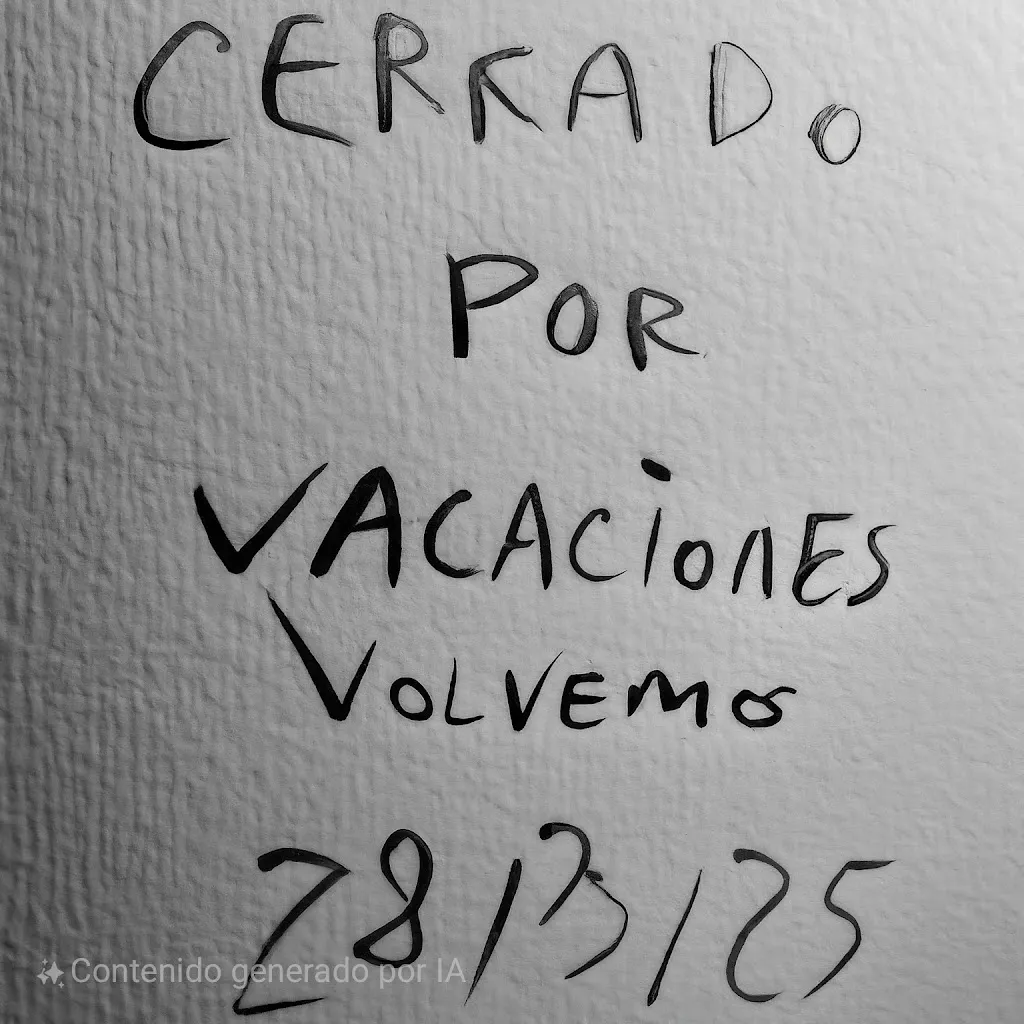 CERRADO
POR
VACACionES
VOLVEMOS
28/3/25
Contenido generado por IA